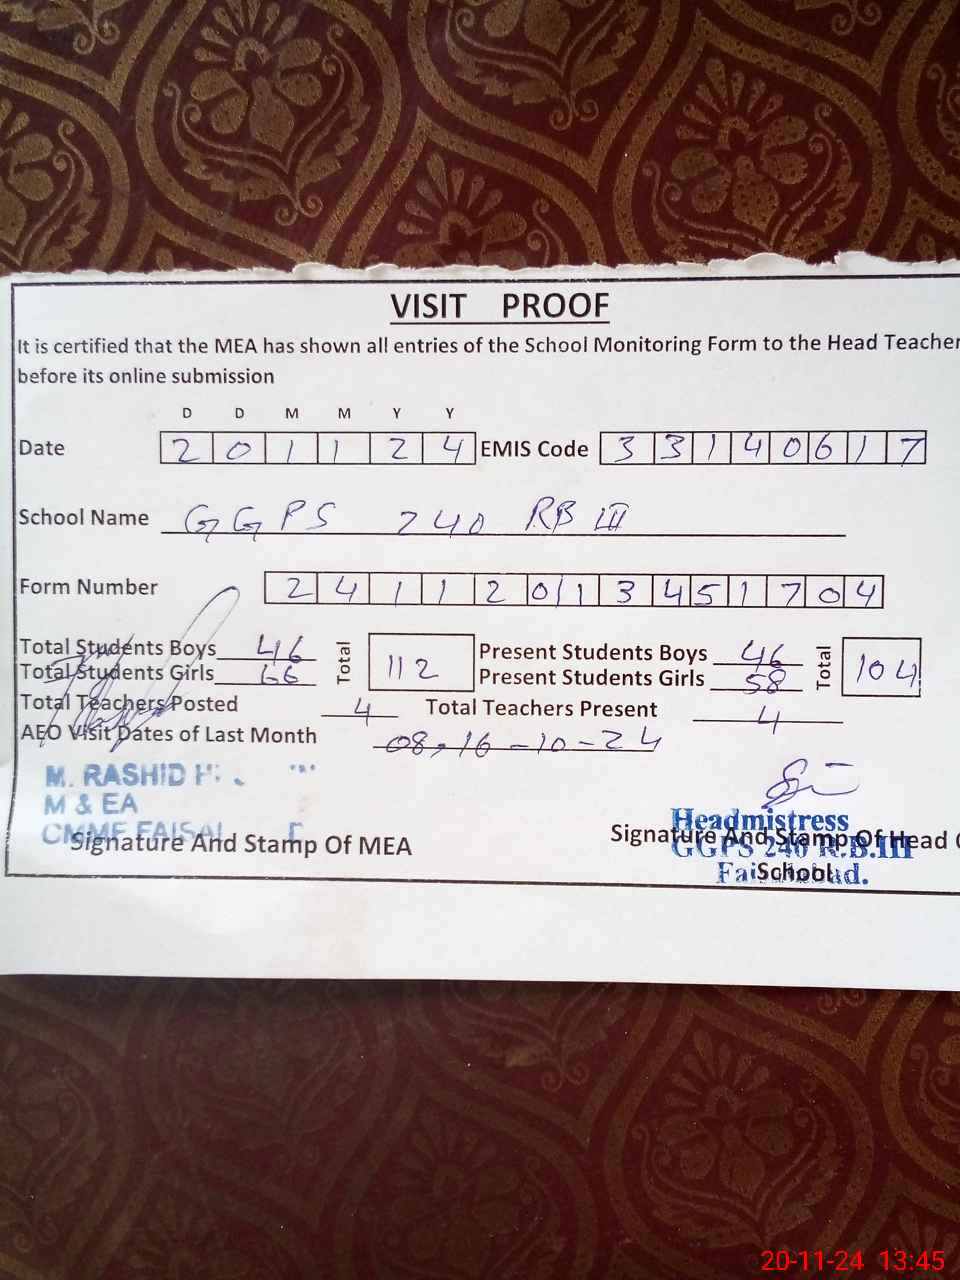 VISIT PROOF
It is certified that the MEA has shown all entries of the School Monitoring Form to the Head Teacher
before its online submission
D D M M Y Y
Date 2 0 1 1 2 4 EMIS Code 3 3 1 4 0 6 1 7
School Name GGPS 240 RB III
Form Number 2 4 1 1 2 0 1 3 4 5 1 7 0 4
Total Students Boys 46 Total 112 Present Students Boys 46 Total 104
Total Students Girls 66 Present Students Girls 58
Total Teachers Posted 4 Total Teachers Present 4
AEO Visit Dates of Last Month 08, 16-10-24
M. RASHID
M & EA
CMMF FAISAL
Signature And Stamp Of MEA
Headmistress
Signature And Stamp Of Head
GGPS 240 R.B.III
School
Faisalabad.
20-11-24 13:45